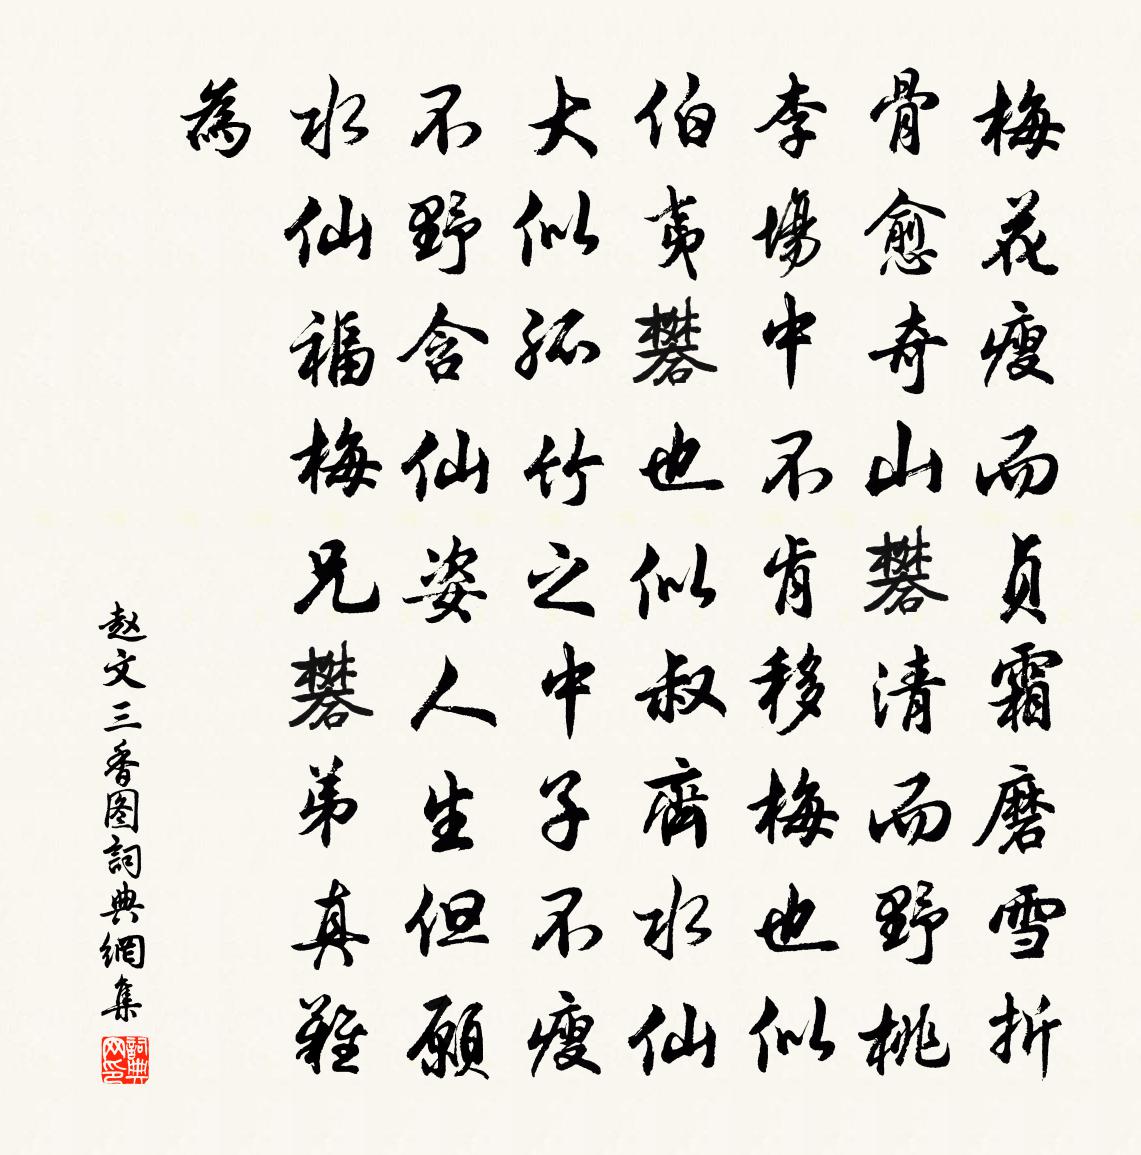 梅花瘦而貞霜磨雪折
骨愈奇山礬清而野桃
李場中不肯移梅也似
伯夷礬也似叔齊水仙
大似孤竹之中子不瘦
不野含仙姿人生但願
水仙福梅兄礬弟真難
為
赵文三香图詞典網集
詞典
网印